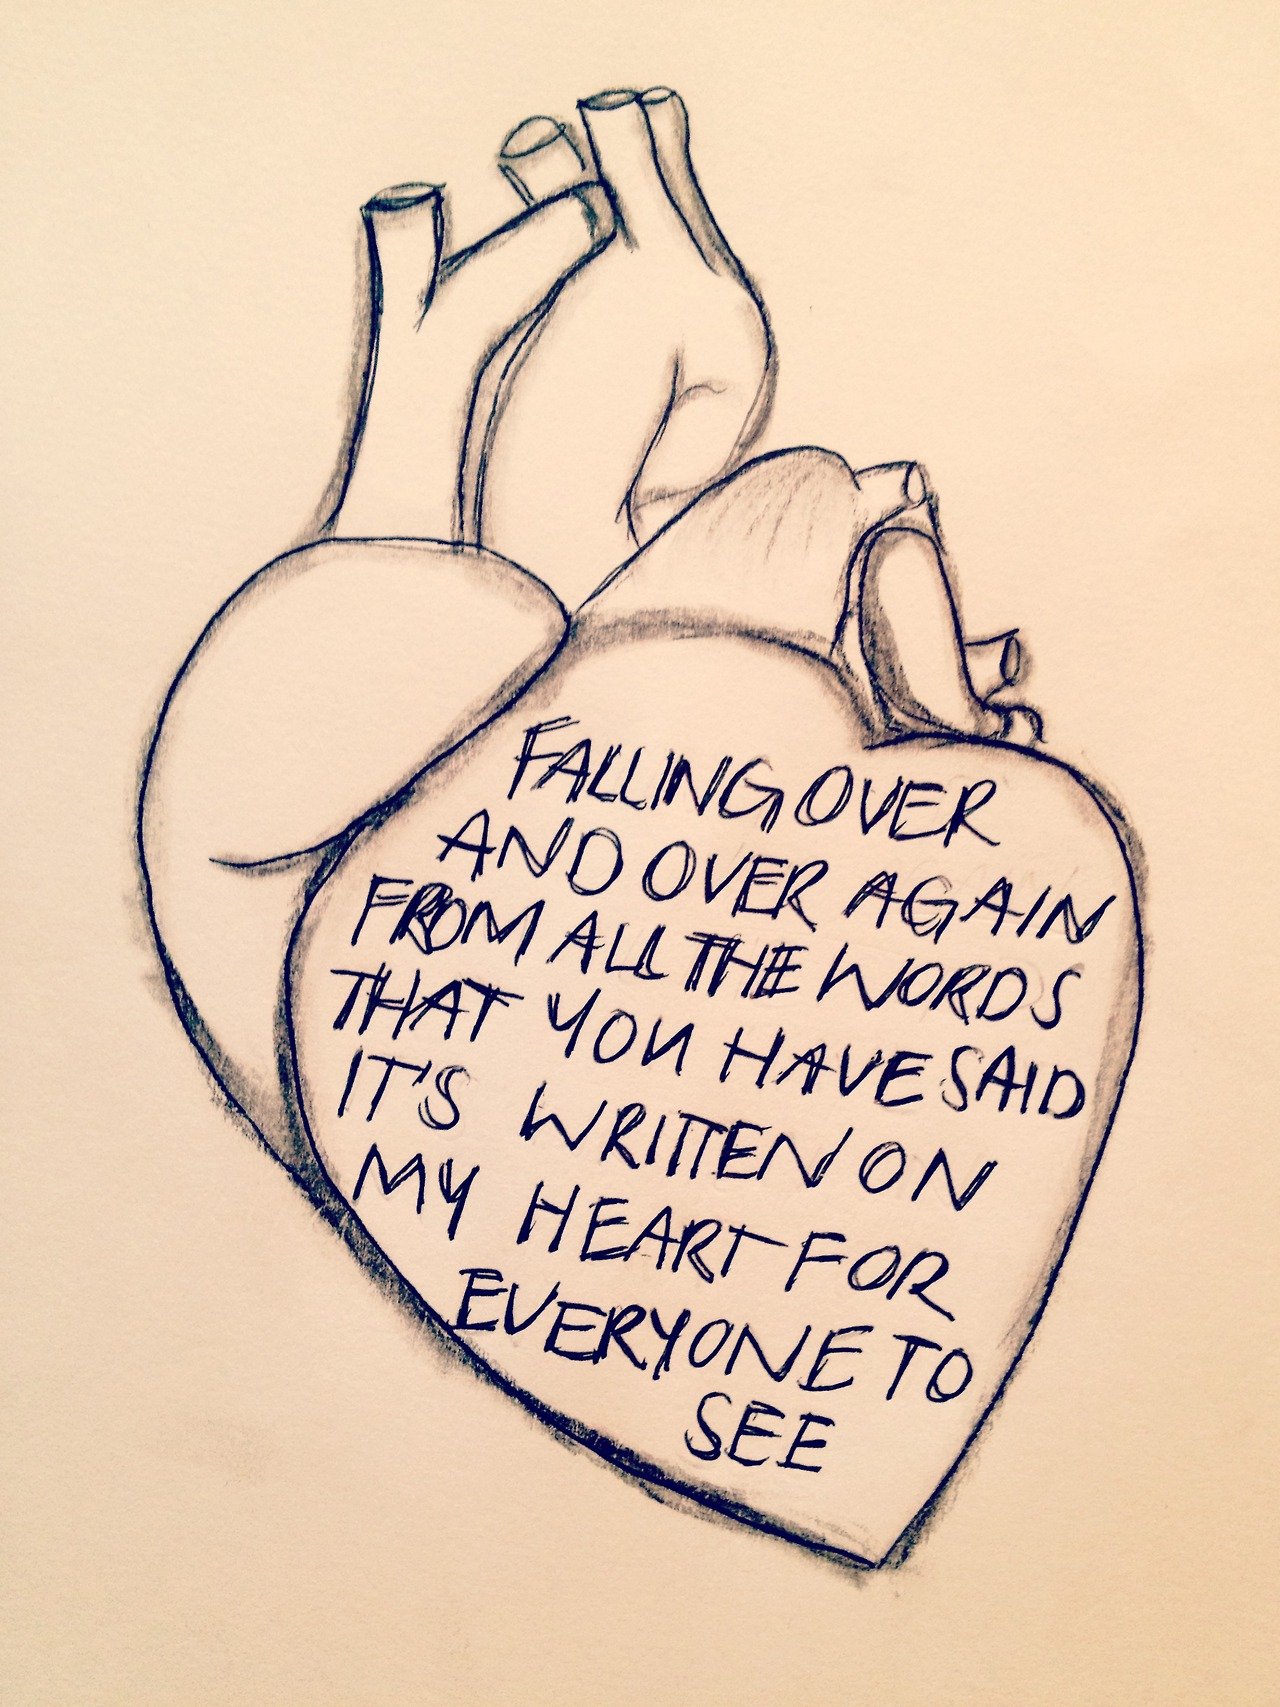 FALLING OVER
AND OVER AGAIN
FROM ALL THE WORDS
THAT YOU HAVE SAID
IT'S WRITTEN ON
MY HEART FOR
EVERYONE TO
SEE